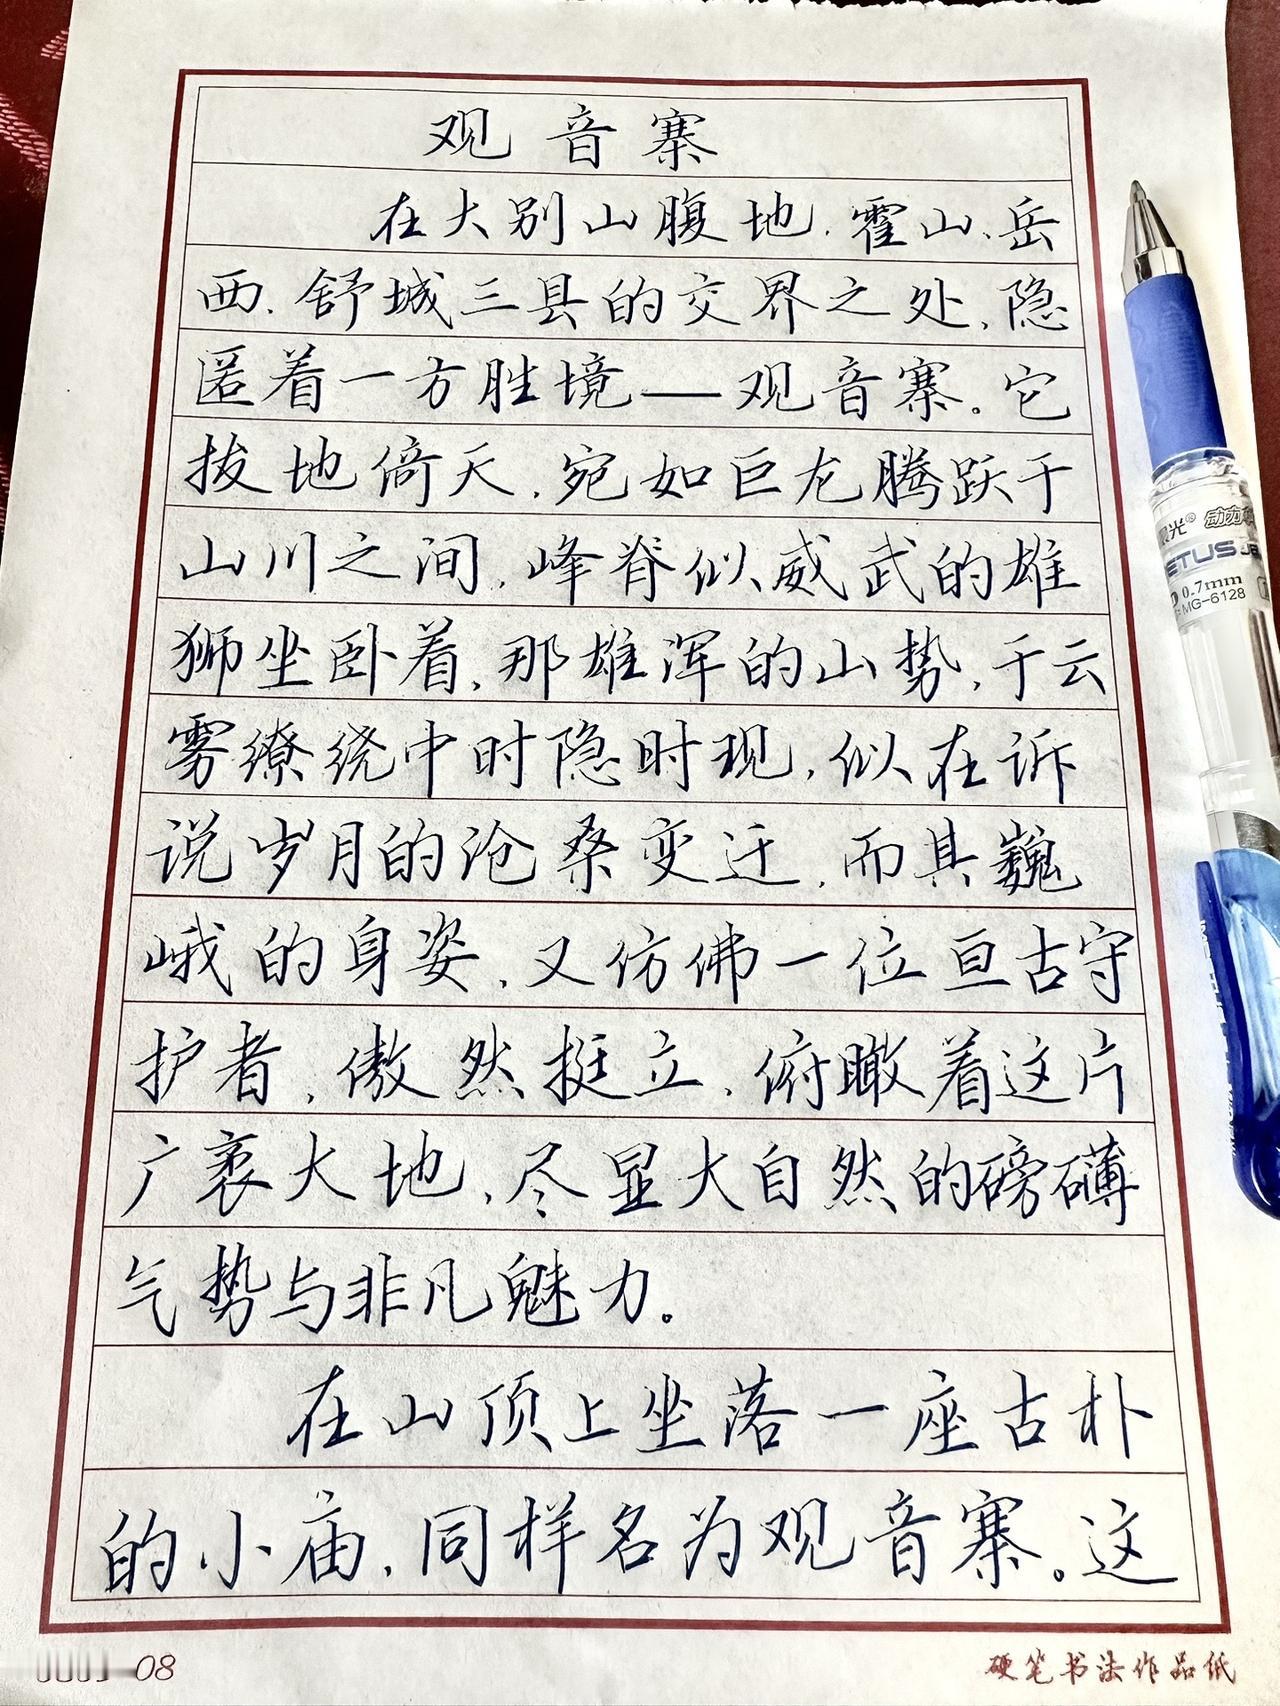 观音寨
在大别山腹地，霍山、岳
西、舒城三县的交界之处，隐
匿着一方胜境——观音寨。它
拔地倚天，宛如巨龙腾跃于
山川之间，峰脊似威武的雄
狮坐卧着，那雄浑的山势，于云
雾缭绕中时隐时现，似在诉
说岁月的沧桑变迁，而其巍
峨的身姿，又仿佛一位亘古守
护者，傲然挺立，俯瞰着这片
广袤大地，尽显大自然的磅礴
气势与非凡魅力。
在山顶上坐落一座古朴
的小庙，同样名为观音寨。这
08
硬笔书法作品纸
晨光® 动力
0.7mm
MG-6128